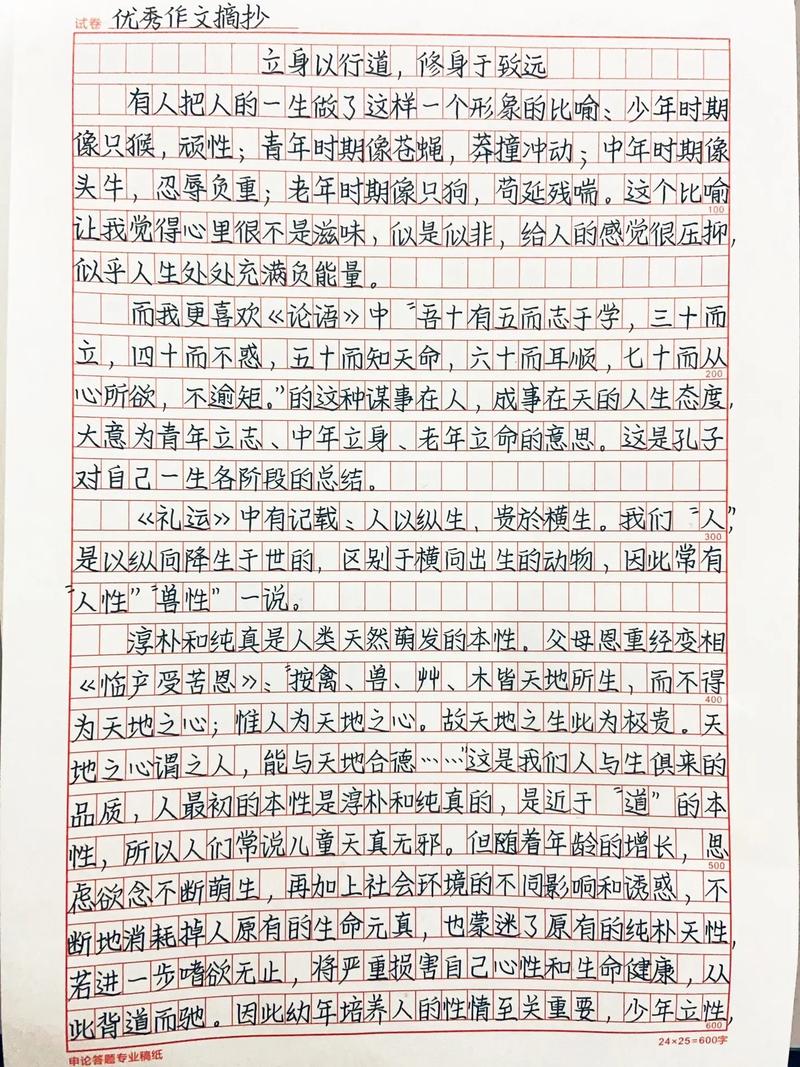 试卷 优秀作文摘抄
立身以行道，修身于致远
有人把人的一生做了这样一个形象的比喻：少年时期
像只猴，顽性；青年时期像苍蝇，莽撞冲动；中年时期像
头牛，忍辱负重；老年时期像只狗，苟延残喘。这个比喻
100
让我觉得心里很不是滋味，似是似非，给人的感觉很压抑，
似乎人生处处充满负能量。
而我更喜欢《论语》中“吾十有五而志于学，三十而
立，四十而不惑，五十而知天命，六十而耳顺，七十而从
200
心所欲，不逾矩。”的这种谋事在人，成事在天的人生态度，
大意为青年立志、中年立身、老年立命的意思。这是孔子
对自己一生各阶段的总结。
《礼运》中有记载：人以纵生，贵於横生。我们“人”，
300
是以纵向降生于世的，区别于横向出生的动物，因此常有
“人性”“兽性”一说。
淳朴和纯真是人类天然萌发的本性。父母恩重经变相
《临产受苦恩》：“按禽、兽、艸、木皆天地所生，而不得
400
为天地之心；惟人为天地之心。故天地之生此为极贵。天
地之心谓之人，能与天地合德……”这是我们人与生俱来的
品质，人最初的本性是淳朴和纯真的，是近于“道”的本
性，所以人们常说儿童天真无邪。但随着年龄的增长，思
500
虑欲念不断萌生，再加上社会环境的不同影响和诱惑，不
断地消耗掉人原有的生命元真，也蒙迷了原有的纯朴天性，
若进一步嗜欲无止，将严重损害自己心性和生命健康，从
此背道而驰。因此幼年培养人的性情至关重要，少年立性，
600
申论答题专业稿纸
24×25=600字